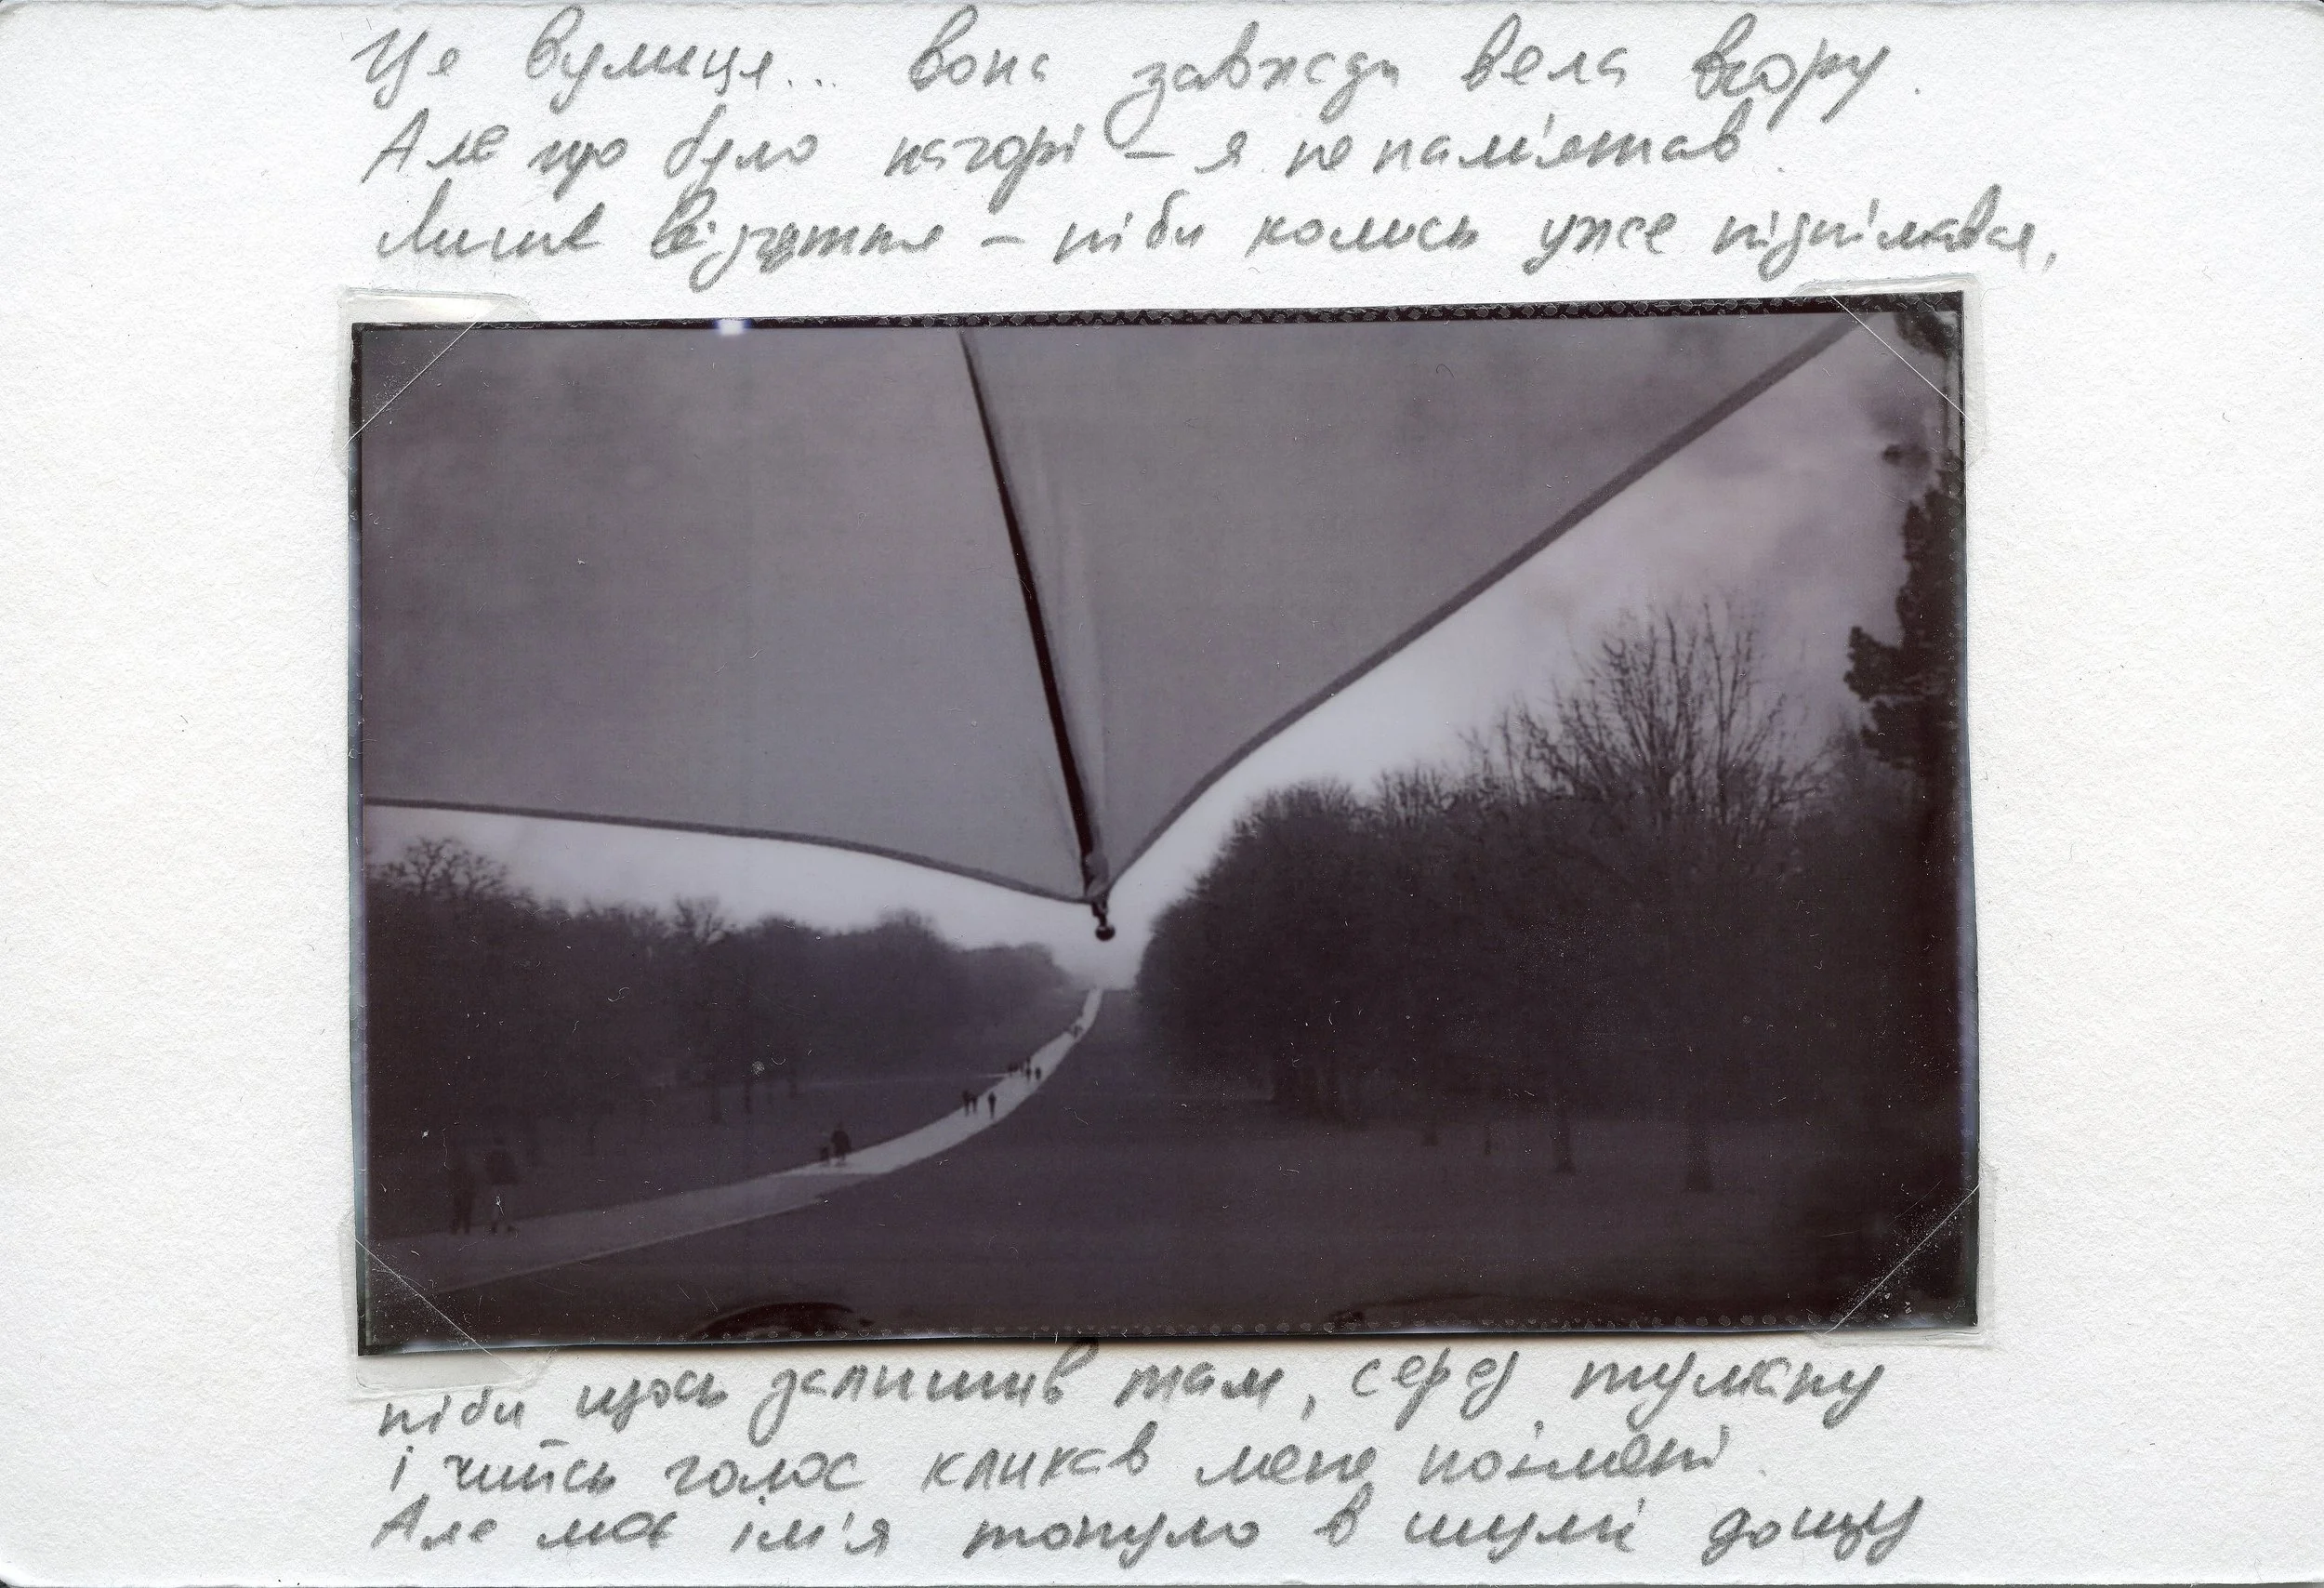 Це вулиця... вона завжди вела вгору.
Але що було нагорі – я не пам'ятав.
Лише відчуття – ніби колись уже піднімався,
ніби щось залишив там, серед туману
і чийсь голос кликав мене поімені.
Але моє ім'я тонуло в шумі дощу